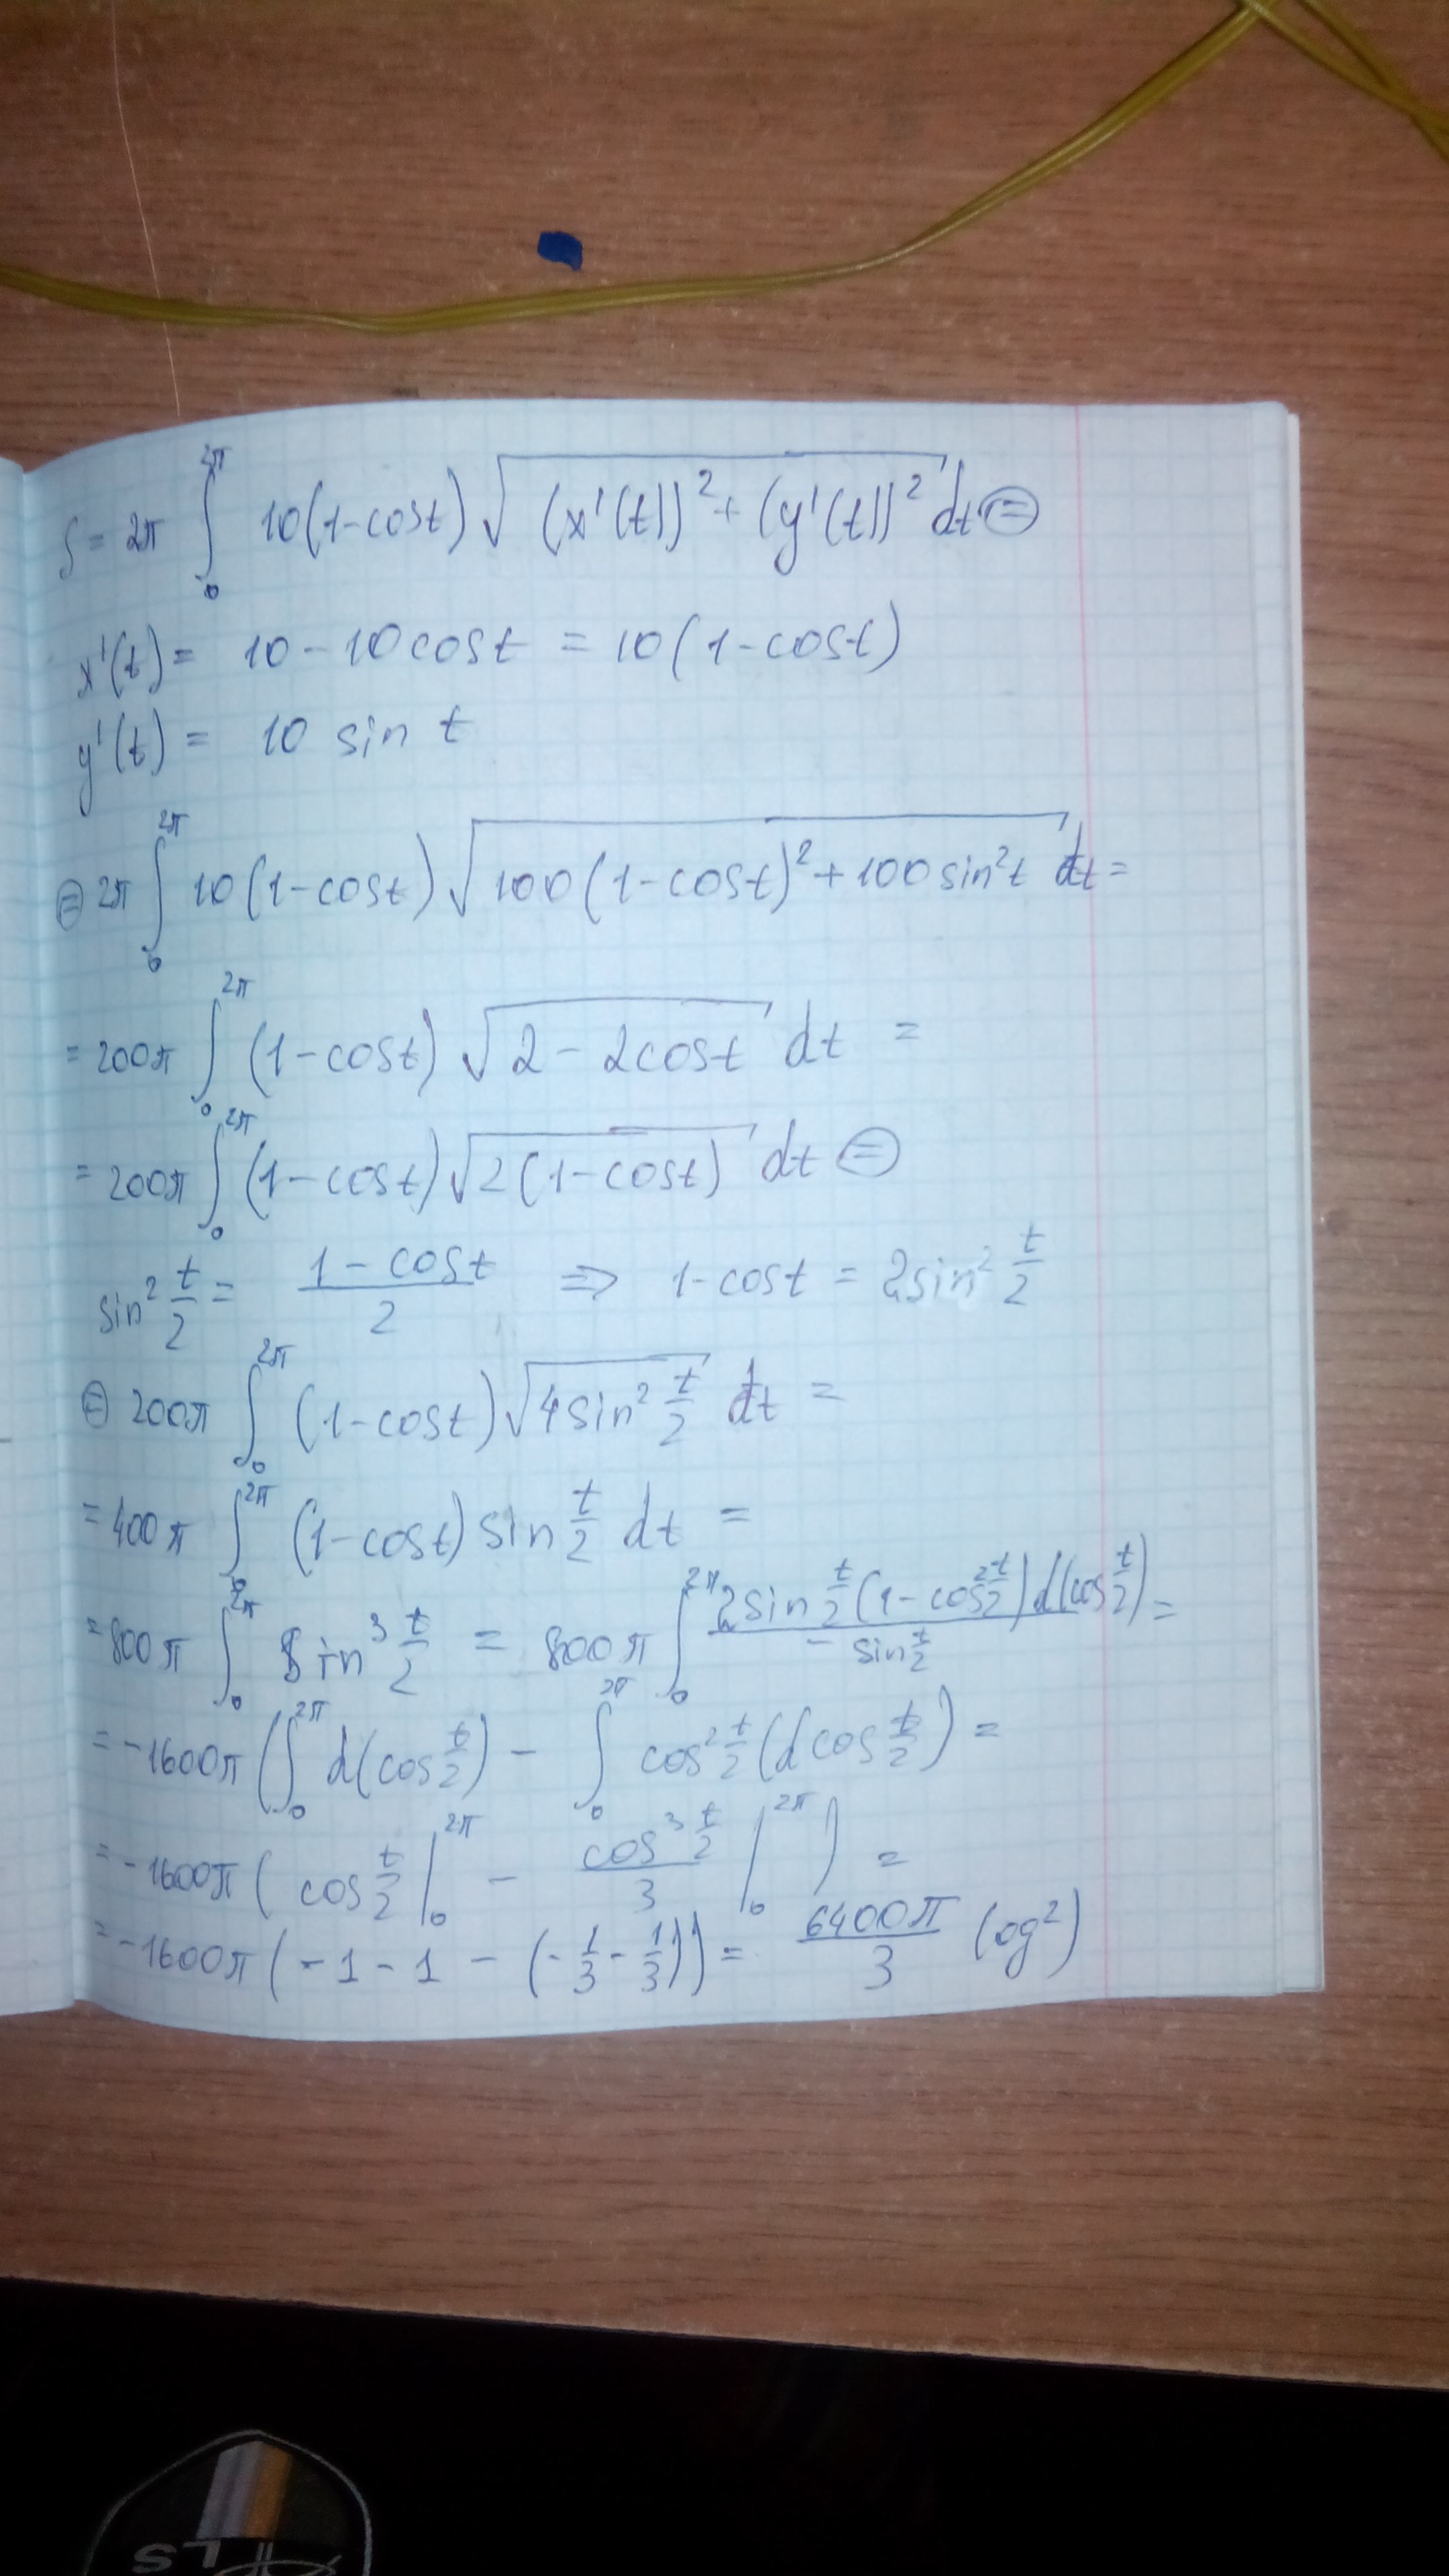 S = 2π ∫₀^{2π} 10(1-cost) √((x'(t))² + (y'(t))²) dt ⊜
x'(t) = 10 - 10cost = 10(1-cost)
y'(t) = 10 sin t
⊜ 2π ∫₀^{2π} 10(1-cost) √(100(1-cost)² + 100sin²t) dt =
= 200π ∫₀^{2π} (1-cost) √(2 - 2cost) dt =
= 200π ∫₀^{2π} (1-cost) √(2(1-cost)) dt ⊜
sin² t/2 = (1-cost)/2 ⇒ 1-cost = 2sin² t/2
⊜ 200π ∫₀^{2π} (1-cost) √(4sin² t/2) dt =
= 400π ∫₀^{2π} (1-cost) sin t/2 dt =
= 800π ∫₀^{2π} sin³ t/2 = 800π ∫₀^{2π} (2sin t/2 (1-cos² t/2) d(cos t/2))/(-sin t/2) =
= -1600π (∫₀^{2π} d(cos t/2) - ∫₀^{2π} cos² t/2 (d cos t/2) =
= -1600π (cos t/2 |₀^{2π} - (cos³ t/2)/3 |₀^{2π}) =
= -1600π (-1 - 1 - (-1/3 - 1/3)) = 6400π/3 (og²)
LS